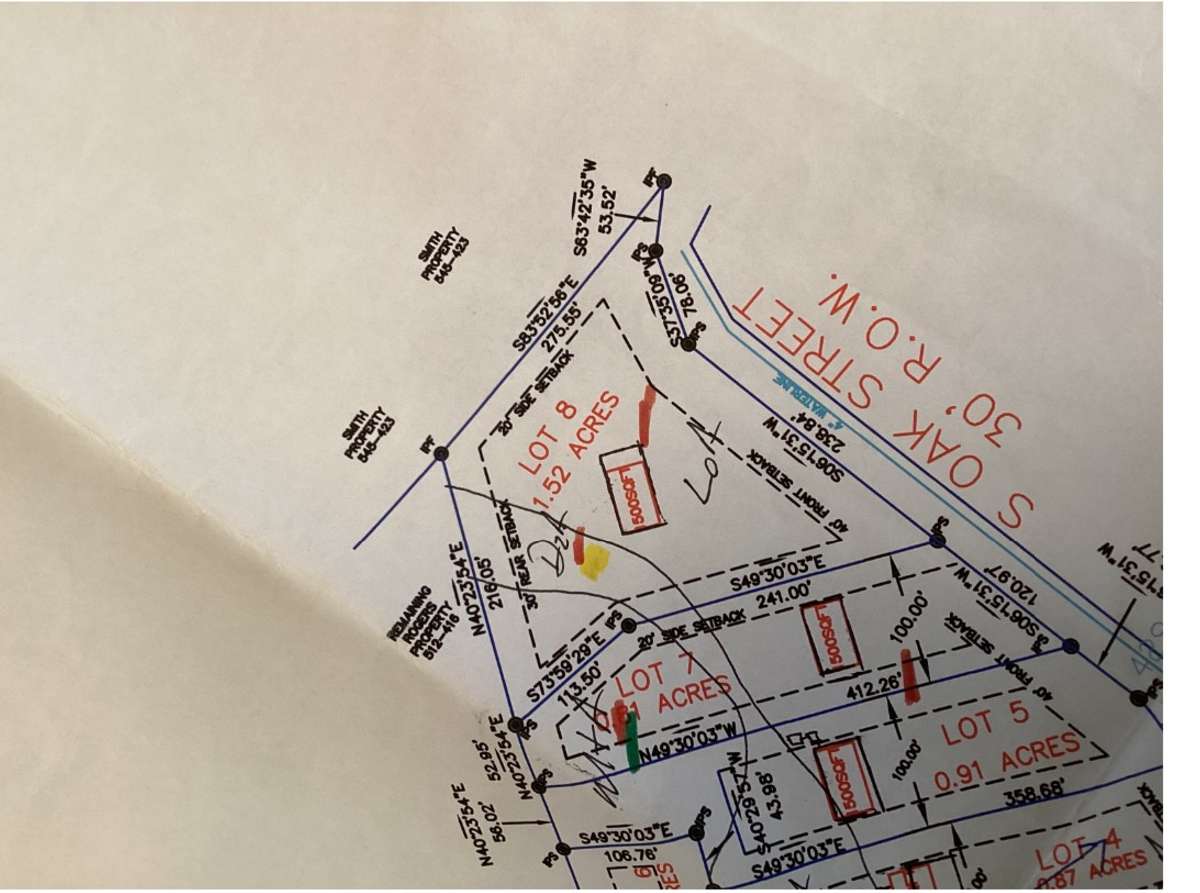 S63°42'35"W
53.52'
IPF
IPS
SMITH
PROPERTY
845-423
S37°35'09"W
78.06'
IPS
S83°52'56"E
275.55'
20' SIDE SETBACK
S OAK STREET
30' R.O.W.
4" WATERLINE
SMITH
PROPERTY
845-423
IPF
LOT 8
1.52 ACRES
500SQFT
LoA
S06°15'31"W
238.84'
40' FRONT SETBACK
30' REAR SETBACK
N40°23'54"E
216.05'
REMAINING
ROGERS
PROPERTY
S49°30'03"E
241.00'
IPS
IPS
20' SIDE SETBACK
S73°59'29"E
113.50'
500SQFT
100.00'
S06°15'31"W
120.97'
40' FRONT SETBACK
LOT 7
ACRES
412.26'
N49°30'03"W
IPS
IPS
N40°23'54"E
52.95'
IPS
N40°23'54"E
56.02'
LOT 5
0.91 ACRES
500SQFT
100.00'
358.68'
S40°29'57"W
43.98'
S49°30'03"E
106.76'
IPS
S49°30'03"E
LOT 4
0.87 ACRES